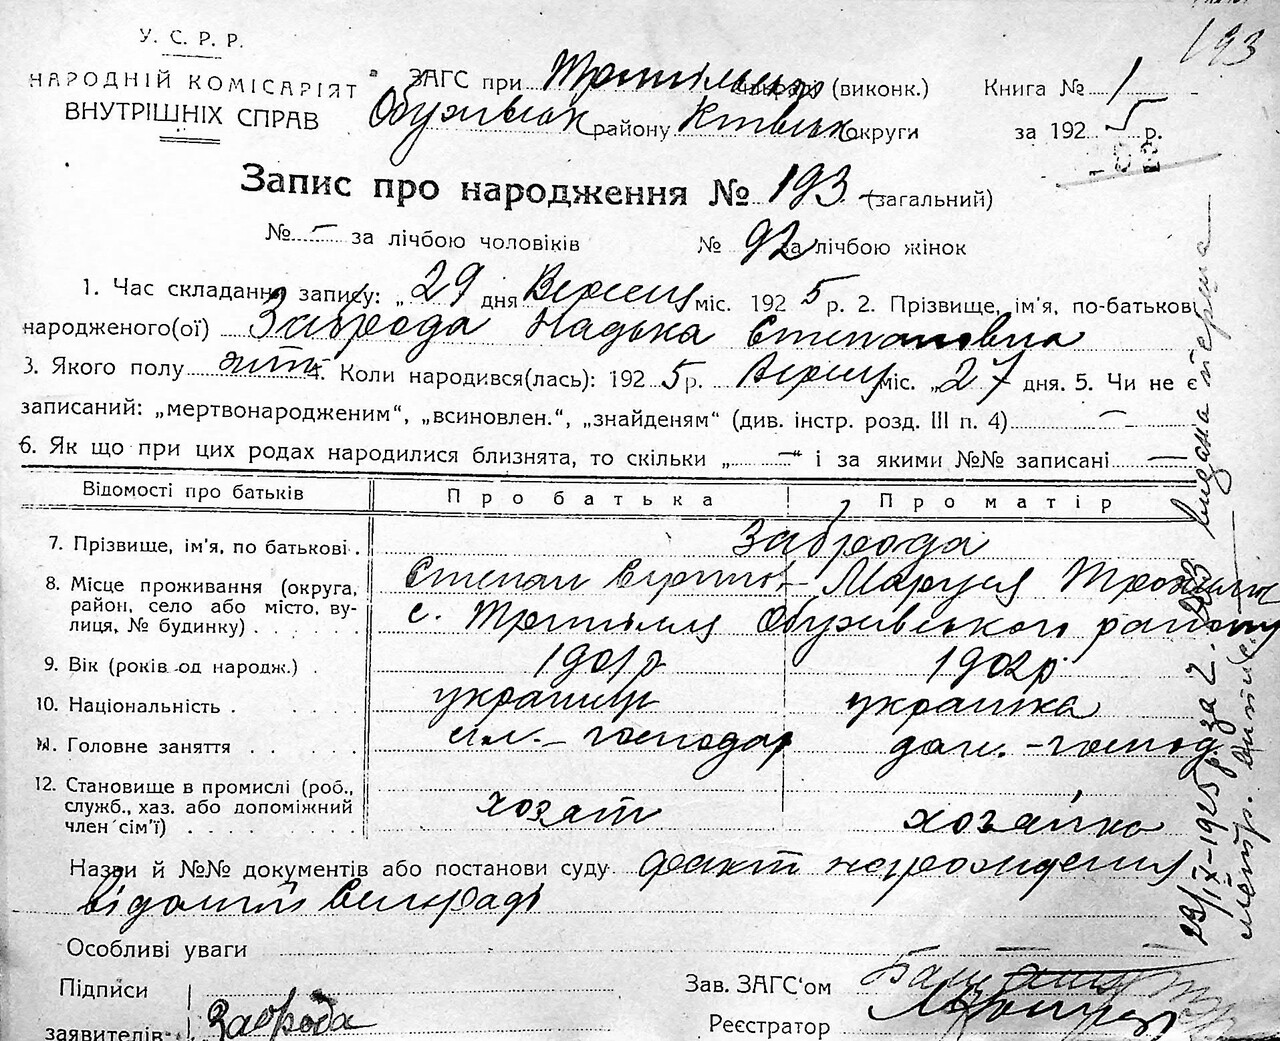 193
У. С. Р. Р.
НАРОДНІЙ КОМІСАРІЯТ
ВНУТРІШНІХ СПРАВ
ЗАГС при (виконк.) Книга № 1
району округи за 192 5 р.
Запис про народження № 193 (загальний)
№ – за лічбою чоловіків № 92 за лічбою жінок
1. Час складання запису: „ 29 дня Вересня міс. 192 5 р. 2. Прізвище, ім'я, по-батькові
народженого(ої) Заброда Надька Степановна
3. Якого полу жін. 4. Коли народився(лась): 192 5 р. Вересня міс. „27 дня. 5. Чи не є
записаний: „мертвонародженим“, „всиновлен.“, „знайденям“ (див. інстр. розд. III п. 4) –
6. Як що при цих родах народилися близнята, то скільки „ – “ і за якими №№ записані –
Відомості про батьків Про батька Про матір
7. Прізвище, ім'я, по батькові. Заброда
Степан Маруся
8. Місце проживання (округа,
район, село або місто, ву-
лиця, № будинку) с. Трипілля Обухівського району
9. Вік (років од народж.) 1901р 1902р.
10. Національність українець українка
11. Головне заняття сіл.-господар дом.-господ.
12. Становище в промислі (роб.,
служб., хаз. або допоміжний
член сім'ї) хозяїн хозяйка
Назви й №№ документів або постанови суду факт народження
відомий Сельраді
Особливі уваги
Підписи Зав. ЗАГС'ом
заявителів Заброда Реєстратор
29/IX-1925 р. за 2. видана перша
метр. витяг